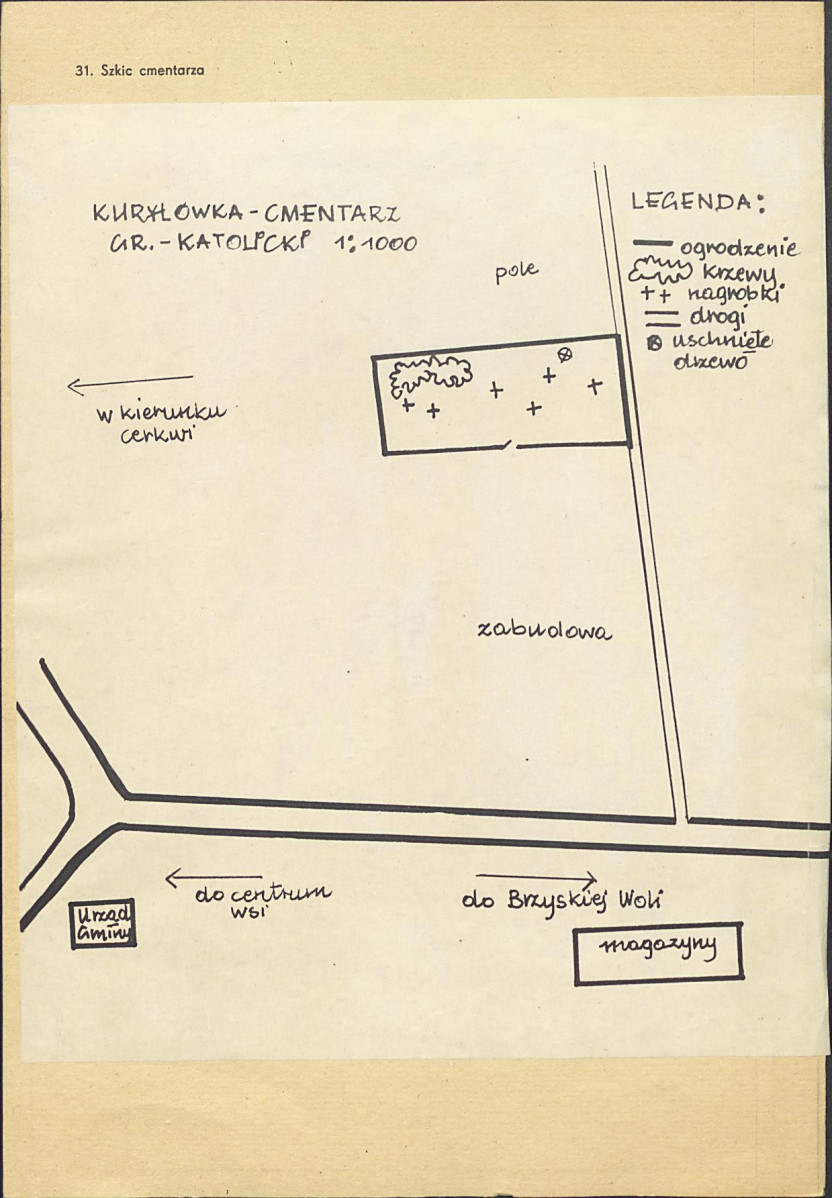 31. Szkic cmentarza
KURYŁÓWKA - CMENTARZ
GR. - KATOLICKI 1:1000
LEGENDA:
ogrodzenie
krzewy
nagrobki
drogi
uschnięte
drzewo
pole
w kierunku
cerkwi
zabudowa
do centrum
wsi
do Brzyskiej Woli
Urząd
Gminy
magazyny